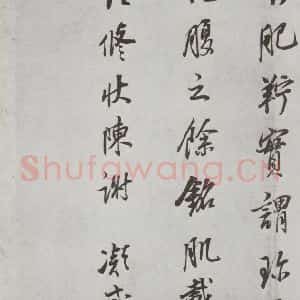 肥羜實謂珍
腹之餘銘肌載
脩狀陳謝 凝
Shufawang.cn